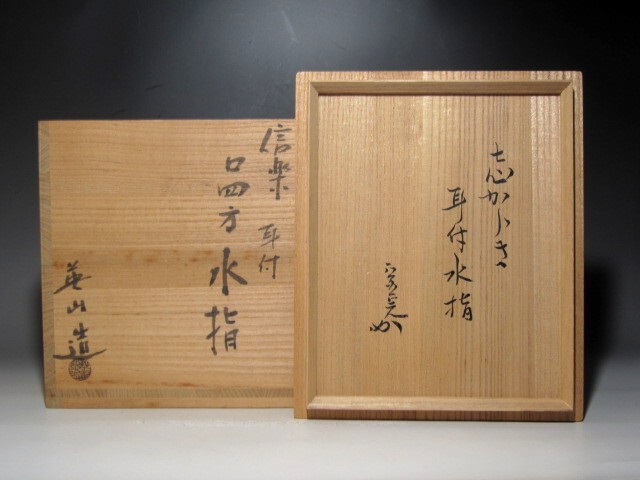 信楽 耳付
口四方水指
英山造
志がらき
耳付水指